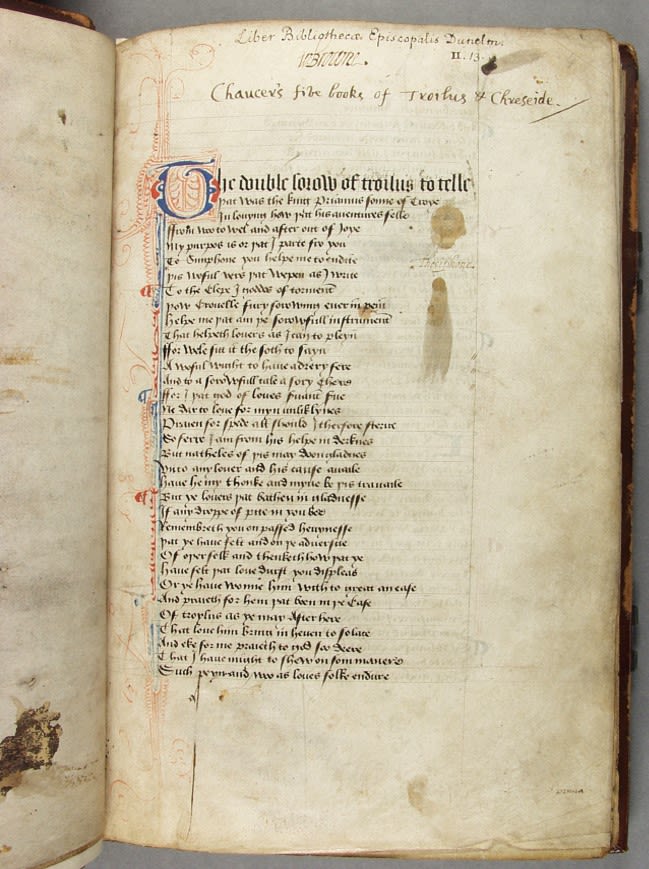 Liber Bibliothecæ Episcopalis Dunelm:
II. 13.
Chaucer's five books of Troilus & Chreseide.
The double sorow of troilus to telle
þat was the king Priamus sonne of Troye
In lovyng how þt his aventures felle
ffrom woo to wel and after out of Joye
My purpos is or þat I parte fro you
To Simphone you helpe me to endite
þis wofull vers þat wepen as I write
Thesiphone
To the Clepe I goddes of torment
þow Crouelle fury sorowing ever in pein
Helpe me þat am þe sorowfull instrument
That helpeth lovers as I can to pleyn
ffor wele sitt it the soth to sayn
A woful wight to have a drery fere
And to a sorowfull tale a sory Chere
ffor I þat god of loves
Ne dar to love for myn unliklynes
for spede all should I therfore sterve
So ferre I am from his helpe in derknes
But natheles if þis may doon gladnes
Unto any lover and his cause availe
Have he my thonke and myne be þis travaile
But ye lovers þat bathen in gladnesse
If any droppe of pite in you bee
Remembreth you on passed hevynesse
þat ye have felt and on þe adversite
Of oþer folk and thenketh how þat ye
Have felt þat love durst you displeas
Or ye have wonne him with to great an ease
And prayeth for hem þat been in þe Case
Of troylus as ye may After here
That love him bring in heven to solace
And eke for me prayeth to god soo deere
That I have might to shew on som manere
Such peyn and woo as loves folke endure